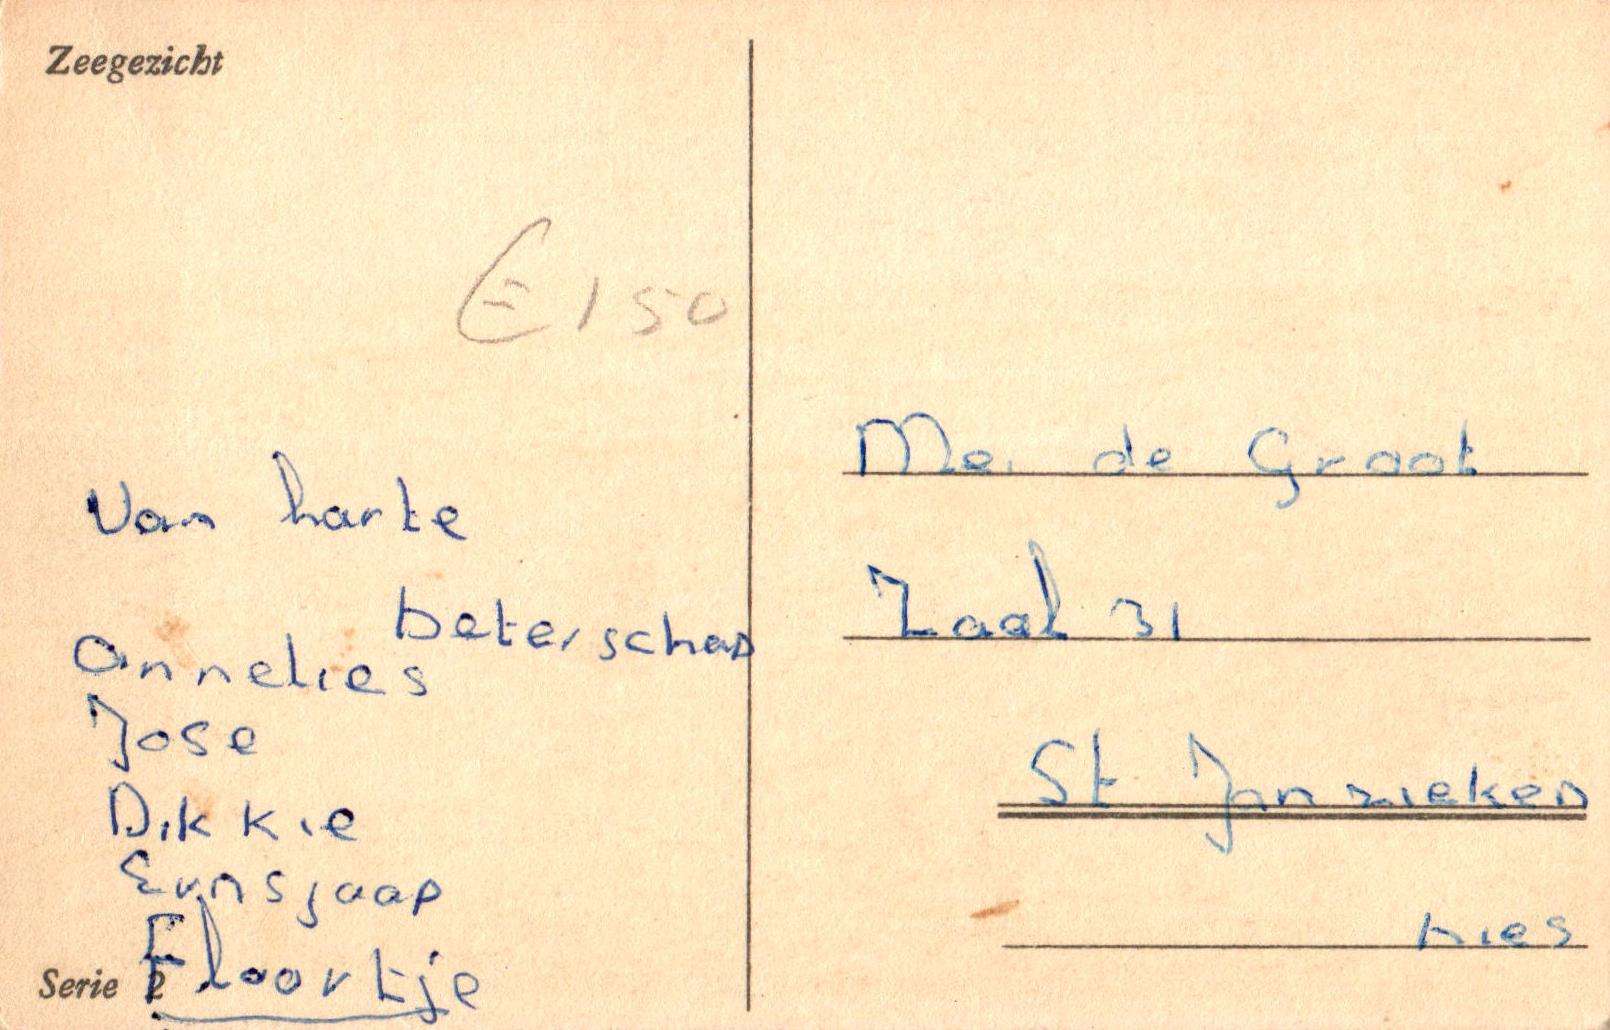 Zeegezicht
€ 150
Van harte
beterschap
Annelies
Jose
Dikkie
Floortje
Serie 2
Me. de Groot
Zaal 31
St Jan zieken
hies